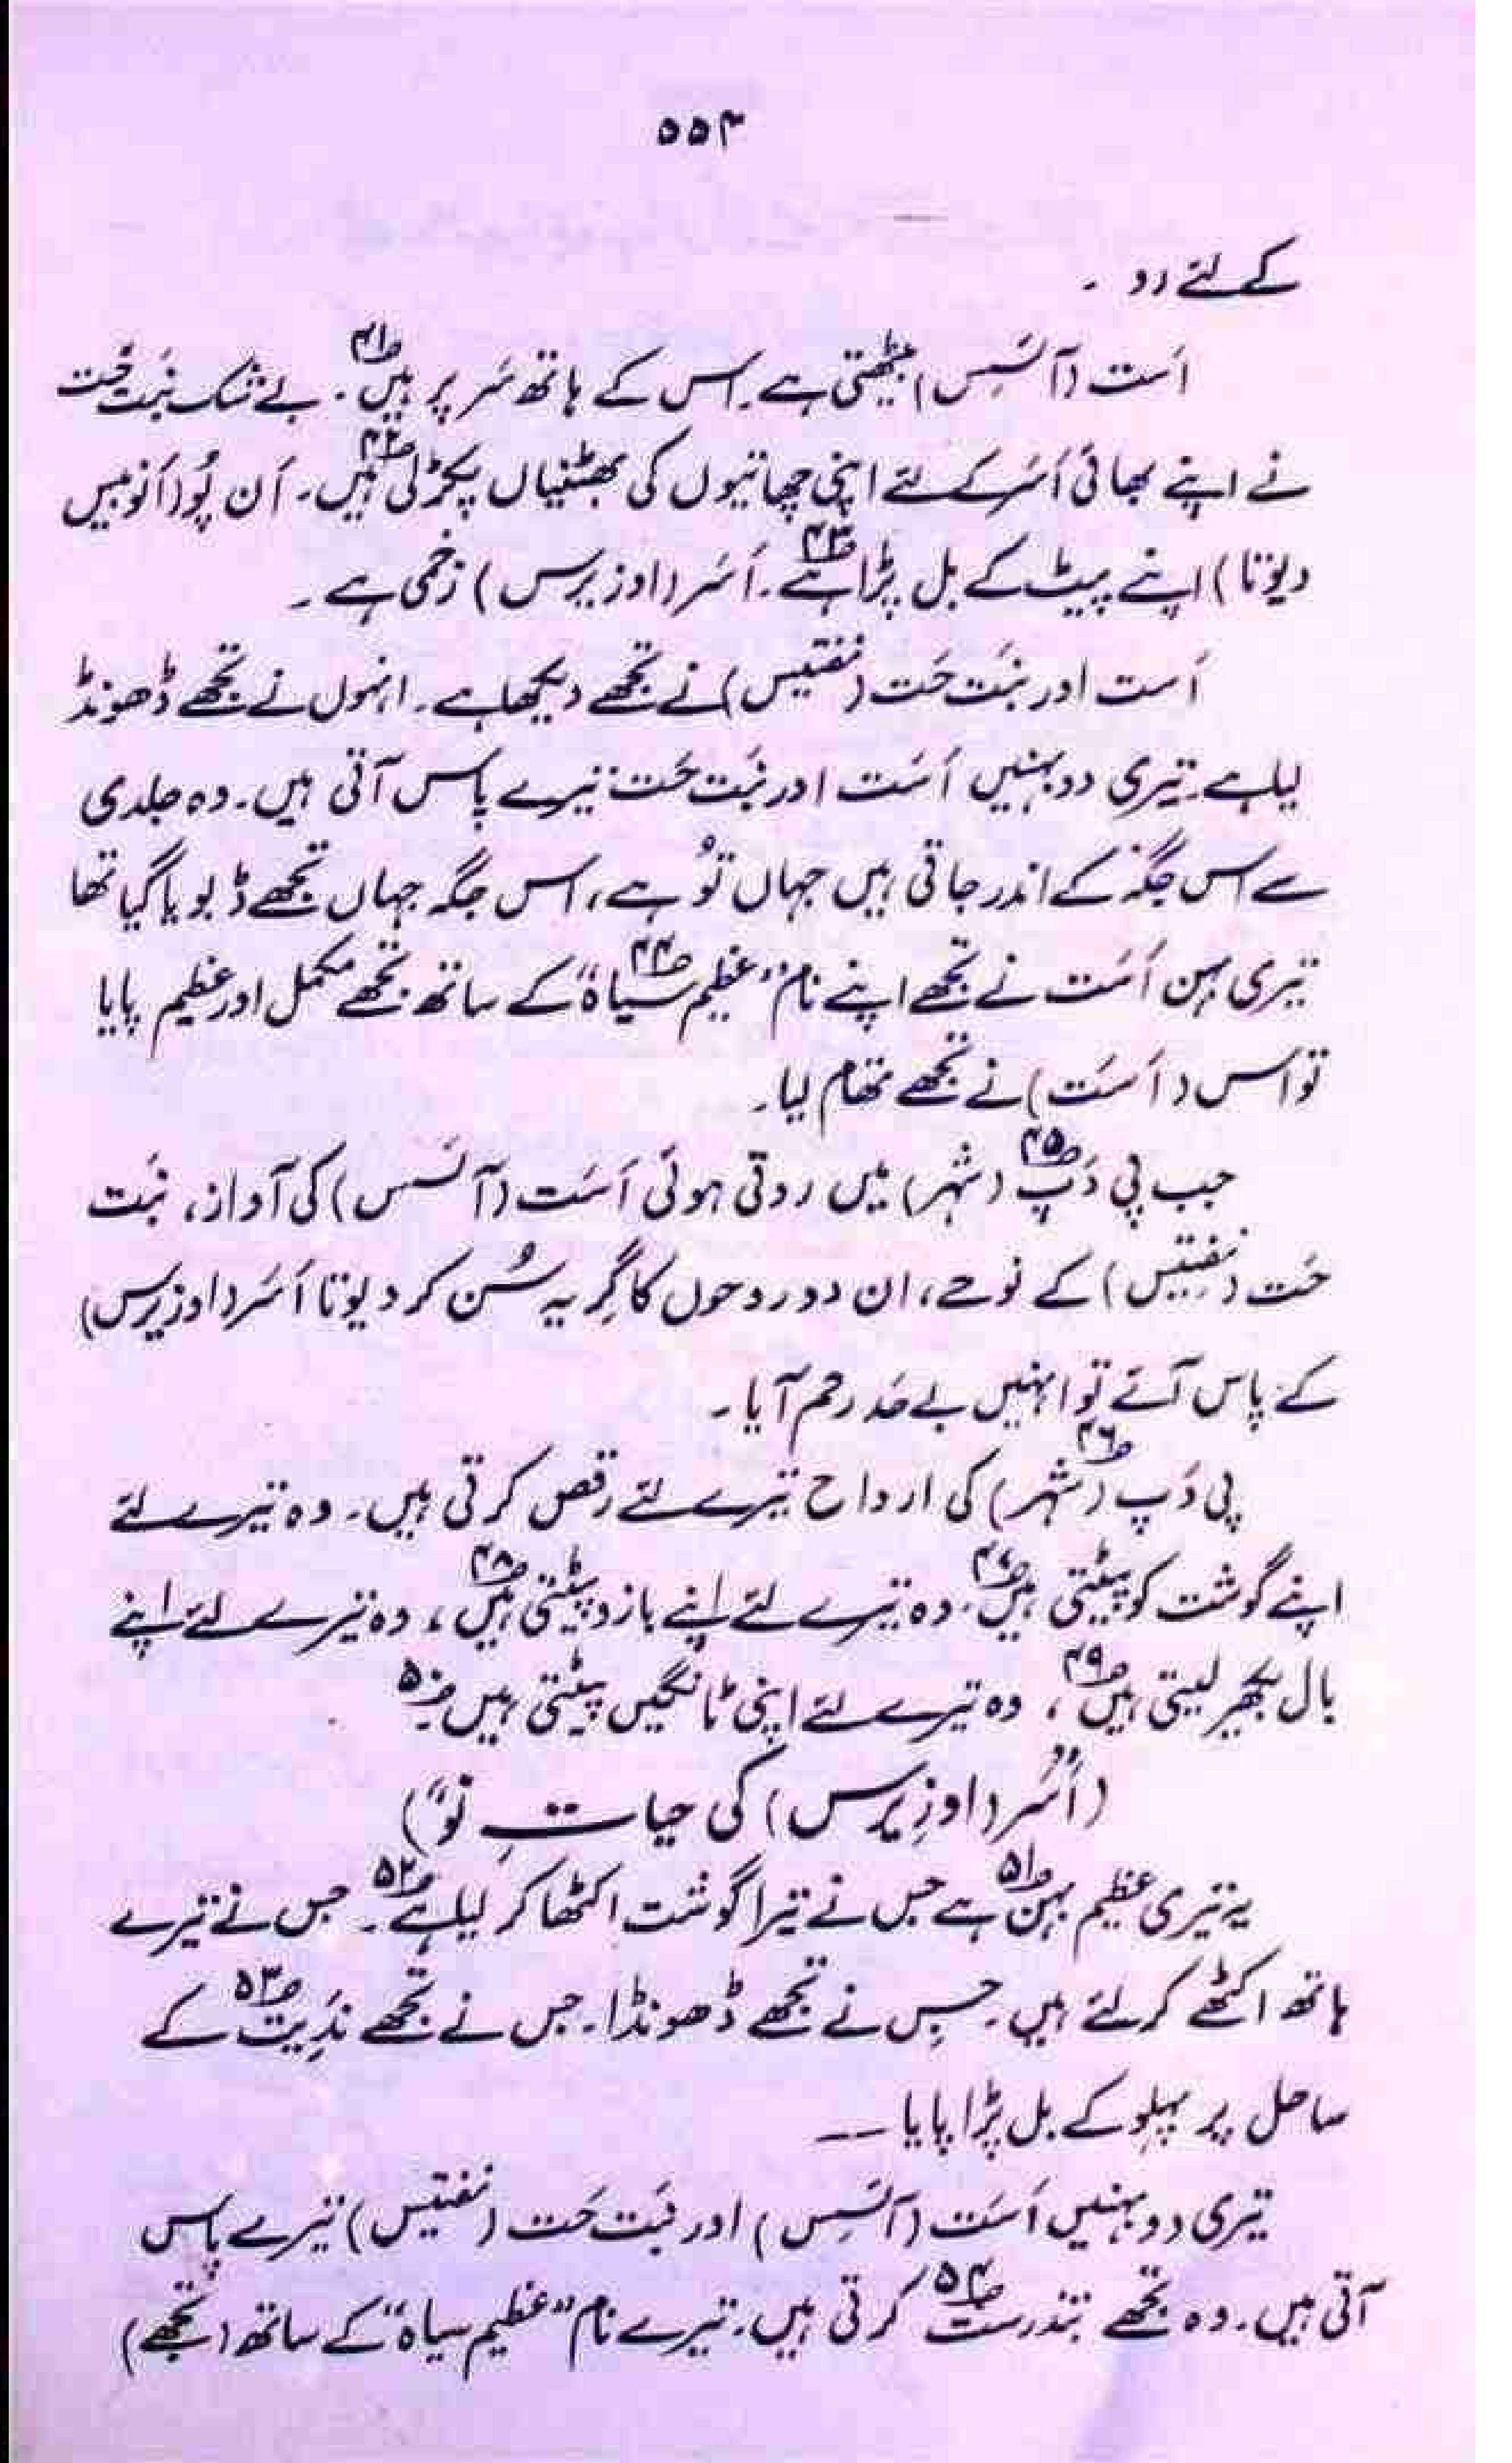 ۵۵۴
کے لئے رو ۔
اَست (آئسِس) بیٹھتی ہے۔ اس کے ہاتھ سَر پر ہیں۴۱۔ بے شک نبَت حَت
نے اپنے بھائی اَسَر کے لئے اپنی چھاتیوں کی بھٹنیاں پکڑ لی ہیں۴۲۔ اَن پُو (اَنوبیس
دیوتا) اپنے پیٹ کے بل پڑا ہے۴۳۔ اَسَر (اوزیرس) زخمی ہے ۔
اَست اور نبَت حَت (نفتیس) نے تجھے دیکھا ہے۔ انہوں نے تجھے ڈھونڈ
لیا ہے۔ تیری دو بہنیں اَسَت اور نبَت حَت تیرے پاس آتی ہیں۔ وہ جلدی
سے اس جگہ کے اندر جاتی ہیں جہاں تُو ہے، اس جگہ جہاں تجھے ڈبویا گیا تھا
تیری بہن اَسَت نے تجھے اپنے نام ”عظیم سیاہ“۴۴ کے ساتھ تجھے مکمل اور عظیم پایا
تو اس (اَسَت) نے تجھے تھام لیا۔
جب پی دَپ۴۵ (شہر) میں روتی ہوئی اَسَت (آئسس) کی آواز، نبَت
حَت (نفتیس) کے نوحے، ان دو روحوں کا گِریہ سُن کر دیوتا اَسَر (اوزیرس)
کے پاس آئے تو انہیں بے حَد رحم آیا۔
پی دَپ۴۶ (شہر) کی ارواح تیرے لئے رقص کرتی ہیں۔ وہ تیرے لئے
اپنے گوشت کو پیٹتی ہیں۴۷۔ وہ تیرے لئے اپنے بازو پیٹتی ہیں۴۸، وہ تیرے لئے اپنے
بال بکھیر لیتی ہیں۴۹، وہ تیرے لئے اپنی ٹانگیں پیٹتی ہیں۔۵۰
(”اَسَر (اوزِیرس) کی حیاتِ نَو“)
یہ تیری عظیم بہن۵۱ ہے جس نے تیرا گوشت اکٹھا کر لیا ہے۵۲۔ جس نے تیرے
ہاتھ اکٹھے کر لئے ہیں۔ جِس نے تجھے ڈھونڈا۔ جس نے تجھے نَدِیَت۵۳ کے
ساحل پر پہلو کے بل پڑا پایا ــ
تیری دو بہنیں اَسَت (آئسِس) اور نبَت حَت (نفتیس) تیرے پاس
آتی ہیں۔ وہ تجھے تندرست۵۴ کرتی ہیں۔ تیرے نام ”عظیم سیاہ“ کے ساتھ (تجھے)